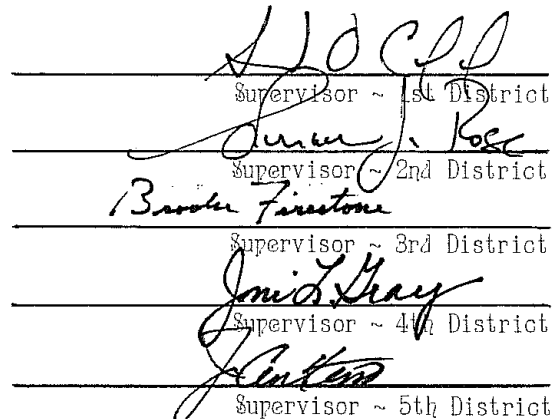 Supervisor ~ 1st District
J. Rose
Supervisor ~ 2nd District
Brooks Firestone
Supervisor ~ 3rd District
Joni L. Gray
Supervisor ~ 4th District
Supervisor ~ 5th District